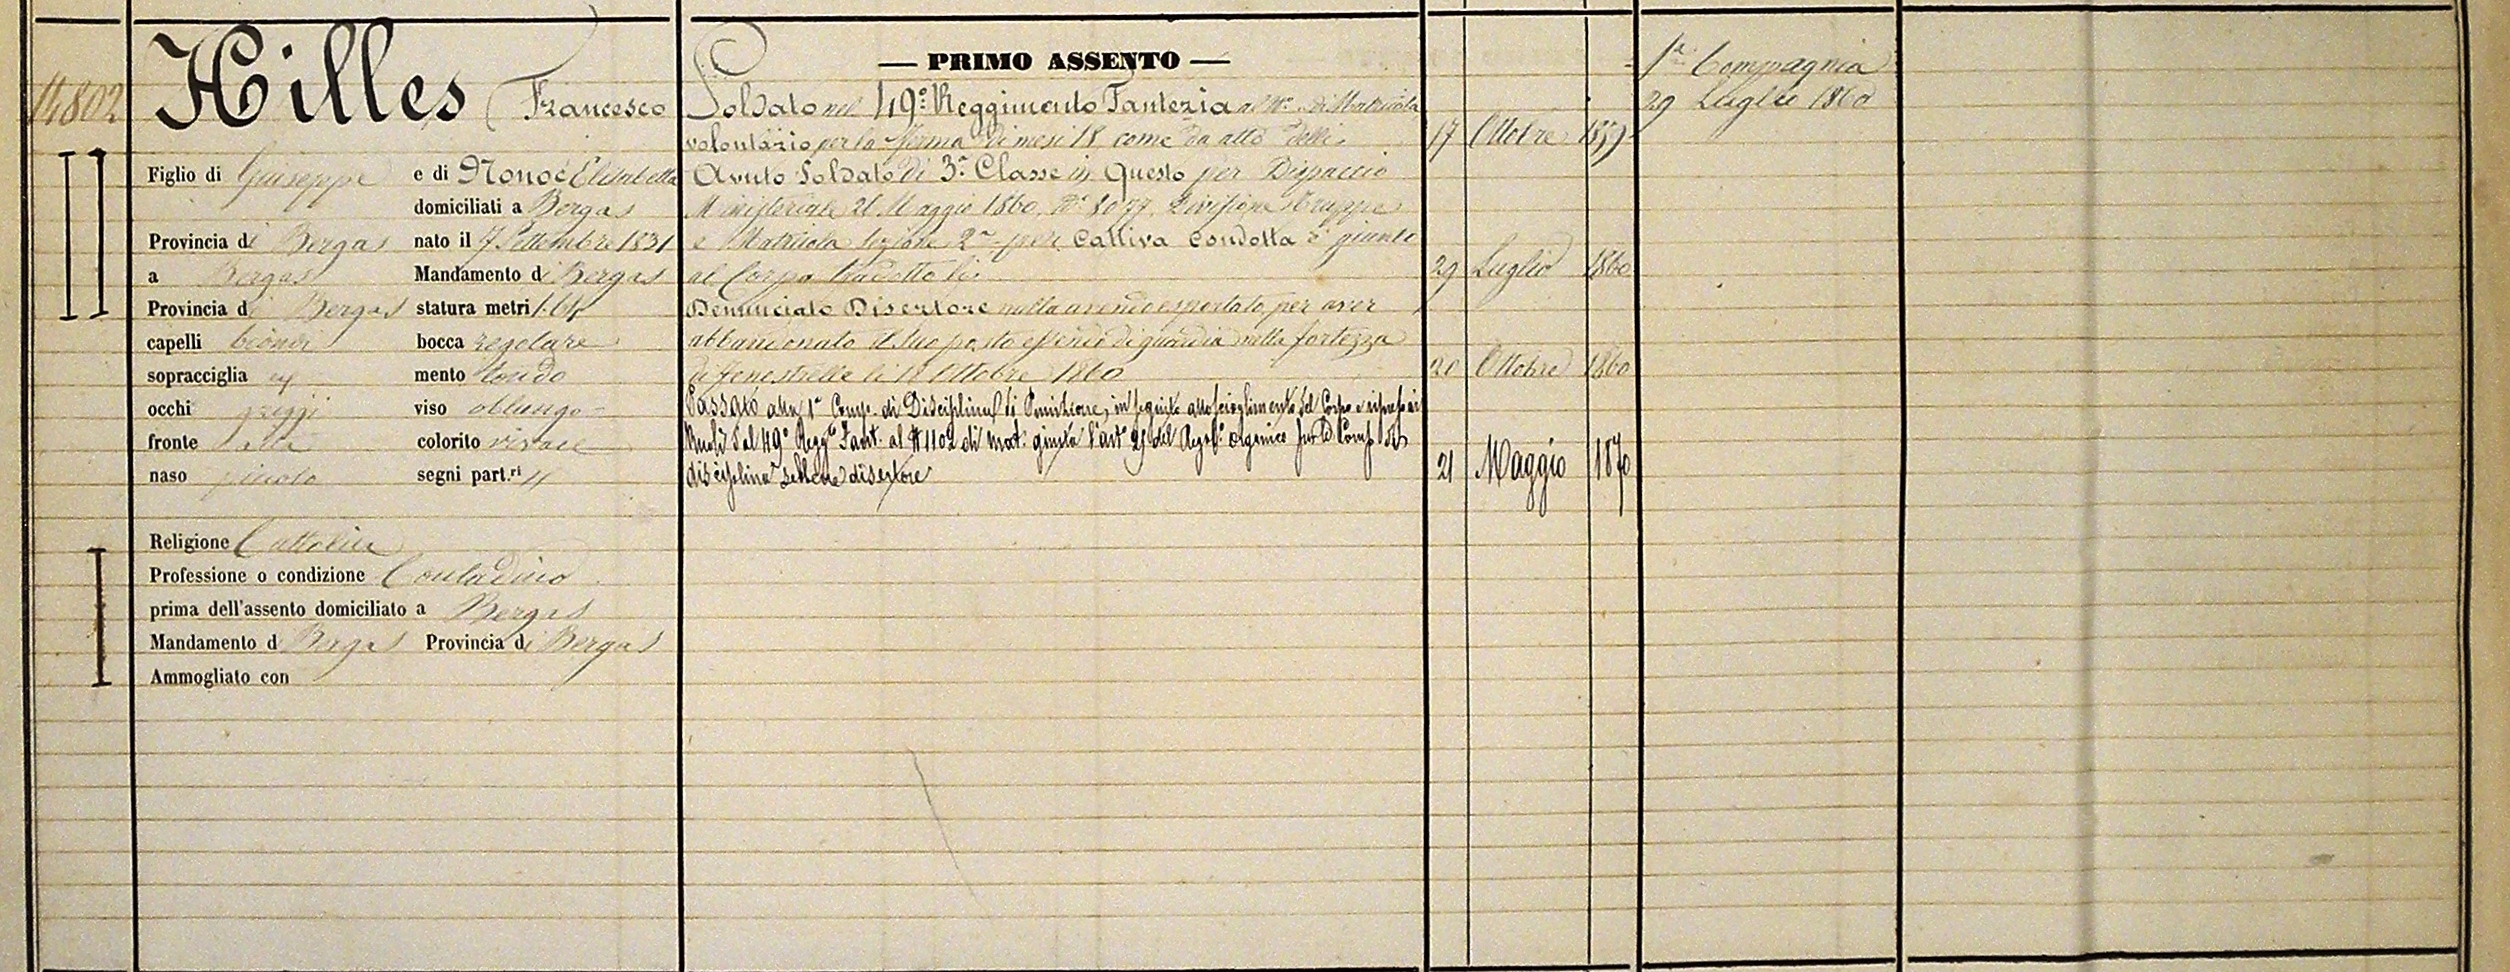 14802
Hilles (Francesco
Figlio di Giuseppe e di Nonoé Elisabetta
domiciliati a Bergas
Provincia di Bergas nato il 7 Settembre 1831
a Bergas Mandamento di Bergas
Provincia di Bergas statura metri 1.64
capelli biondi bocca regolare
sopracciglia mento tondo
occhi griggi viso oblungo
fronte alta colorito vivace
naso piccolo segni part.ri //
Religione Cattolica
Professione o condizione Contadino
prima dell'assento domiciliato a Bergas
Mandamento di Bergas Provincia di Bergas
Ammogliato con
— PRIMO ASSENTO —
Soldato nel 49º Reggimento Fanteria al Nº di Matricola
volontario per la ferma di mesi 18 come da atto delli 17 Ottobre 1859
Avuto Soldato di 3ª Classe in Questo per Dispaccio
Ministeriale 21 Maggio 1860, Nº 8077, Divisione Truppe
e Matricola Sezione 2ª per Cattiva Condotta è giunto
al Corpo tradotto li 29 Luglio 1860
Denunciato Disertore nulla avendo esportato, per aver
abbandonato il suo posto essendo di guardia nella fortezza
di Fenestrelle li 18 Ottobre 1860 20 Ottobre 1860
Passato alla 1ª Comp. di Disciplina di Punizione, in seguito allo scioglimento del Corpo e
Ruoli dal 49º Regg.to Fant. al # 1102 di mat. giusta l'art. 21 del Regol.º organico
disciplina sebbene disertore 21 Maggio 1870
1ª Compagnia
29 Luglio 1860